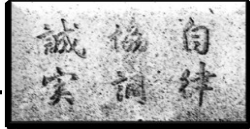 自律
協調
誠実